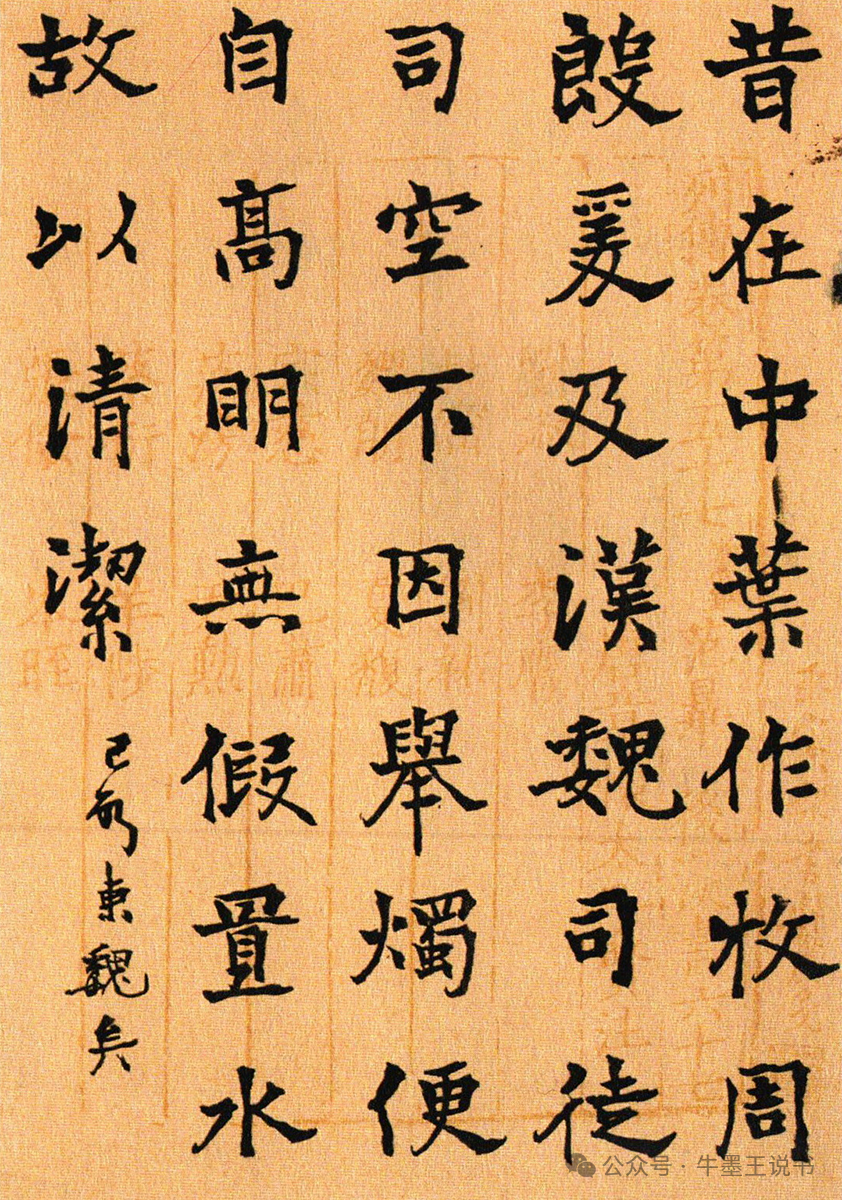 昔在中葉作牧周
殷爰及漢魏司徒
司空不因舉燭便
自髙眀無假置水
故以清潔
東魏矣
公众号 · 牛墨王说书